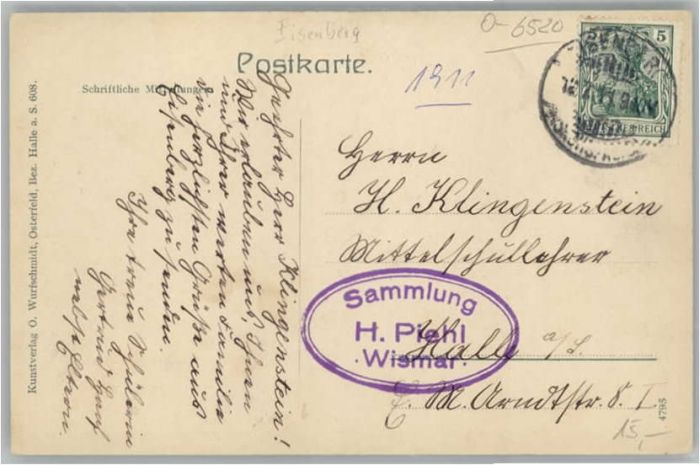 Eisenberg
O-6520
Postkarte.
1911
Schriftliche Mitteilungen
5
EISENBERG
DEUTSCHES REICH
Geehrter Herr Klingenstein!
Wir erlauben uns Ihnen
und Ihrer werten Familie
die herzlichsten Grüße aus
Eisenberg zu senden.
Ihre treue Schülerin
Gertrud
nebst Eltern.
Herrn
H. Klingenstein
Mittelschullehrer
Halle a/S.
E. M. Arndtstr. 8. I
Sammlung
H. Piehl
·Wismar·
Kunstverlag O. Wurfschmidt, Osterfeld, Bez. Halle a. S. 608.
4795
15,-